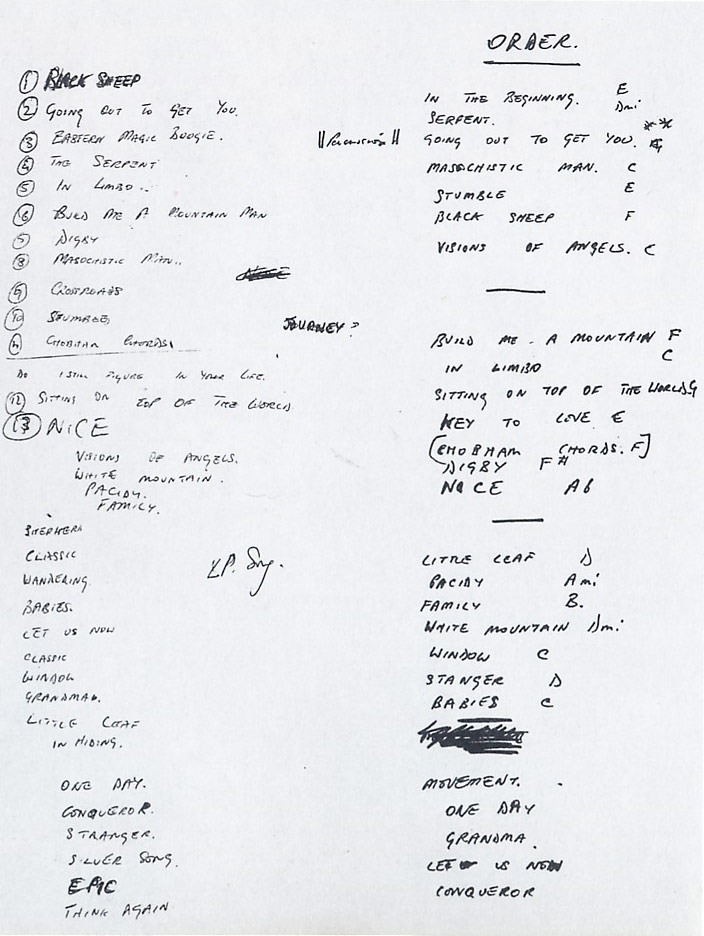 ① BLACK SHEEP
② GOING OUT TO GET YOU.
③ EASTERN MAGIC BOOGIE.
④ THE SERPENT
⑤ IN LIMBO..
⑥ BUILD ME A MOUNTAIN MAN
⑦ DIGBY
⑧ MASOCHISTIC MAN..
⑨ CROSSROADS
⑩ STUMBLE
JOURNEY?
⑪ CHOBHAM CHORDS.
DO I STILL FIGURE IN YOUR LIFE.
⑫ SITTING ON TOP OF THE WORLD
⑬ NICE
VISIONS OF ANGELS.
WHITE MOUNTAIN.
PACIDY.
FAMILY.
SHEPHERD
CLASSIC
WANDERING.
BABIES.
LET US NOW
CLASSIC
WINDOW
GRANDMA.
LITTLE LEAF
IN HIDING.
L.P. Song.
ONE DAY.
CONQUEROR.
STRANGER.
SILVER SONG.
EPIC
THINK AGAIN
ORDER.
IN THE BEGINNING. E
SERPENT. Dmi
GOING OUT TO GET YOU. **
MASOCHISTIC MAN. C
STUMBLE E
BLACK SHEEP F
VISIONS OF ANGELS. C
BUILD ME A MOUNTAIN F
IN LIMBO C
SITTING ON TOP OF THE WORLD G
KEY TO LOVE E
[CHOBHAM CHORDS. F]
DIGBY F#
NICE Ab
LITTLE LEAF D
PACIDY Ami
FAMILY B.
WHITE MOUNTAIN Dmi
WINDOW C
STANGER D
BABIES C
MOVEMENT.
ONE DAY
GRANDMA.
LET US NOW
CONQUEROR